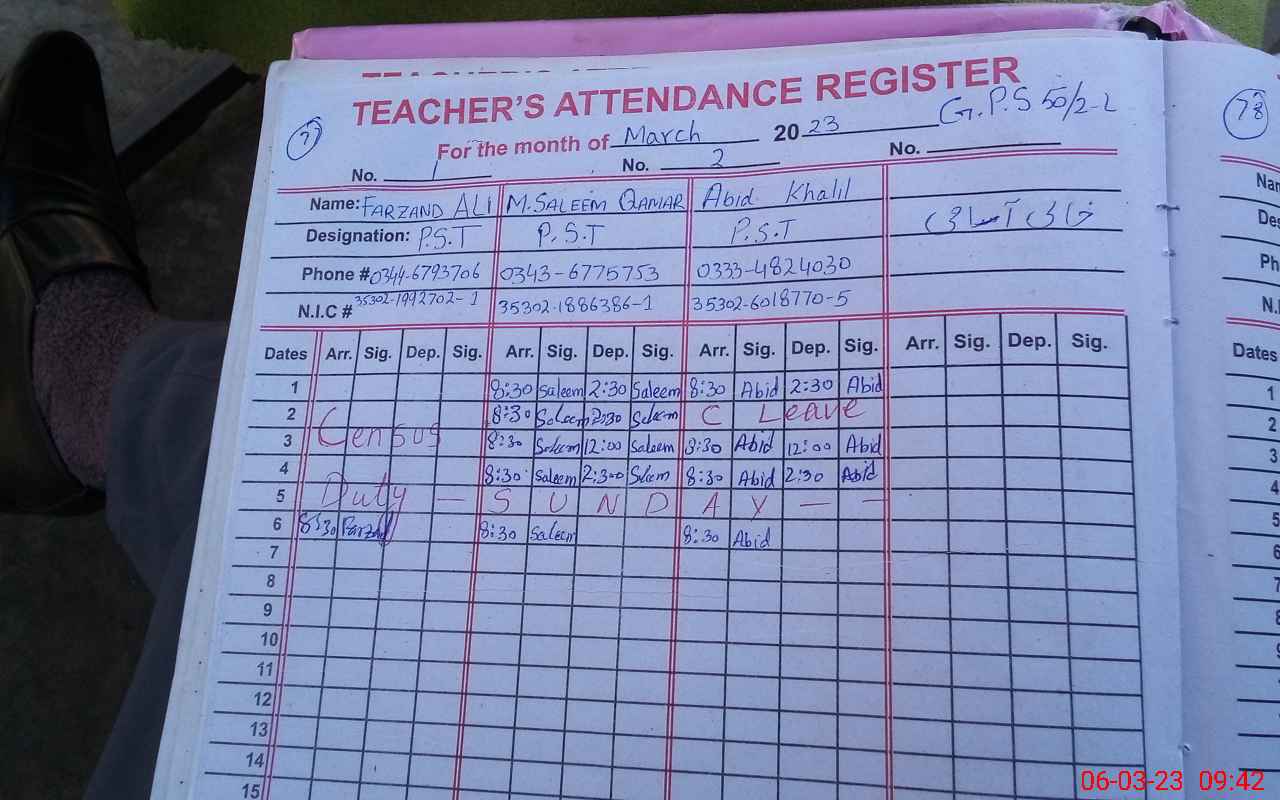 TEACHER'S ATTENDANCE REGISTER
77 For the month of March 2023 G.P.S 50/2-L
No. 1 No. 2 No.
Name: FARZAND ALI M.SALEEM QAMAR Abid Khalil
Designation: P.S.T P.S.T P.S.T خالی آسامی
Phone # 0344-6793706 0343-6775753 0333-4824030
N.I.C # 35302-1992702-1 35302-1886386-1 35302-6018770-5
Dates Arr. Sig. Dep. Sig. Arr. Sig. Dep. Sig. Arr. Sig. Dep. Sig. Arr. Sig. Dep. Sig.
1 8:30 Saleem 2:30 Saleem 8:30 Abid 2:30 Abid
2 8:30 Saleem 2:30 Saleem C Leave
3 Census 8:30 Saleem 12:00 Saleem 8:30 Abid 12:00 Abid
4 8:30 Saleem 2:30 Saleem 8:30 Abid 2:30 Abid
5 Duty — S U N D A Y — —
6 8:30 Farzand 8:30 Saleem 8:30 Abid
7
8
9
10
11
12
13
14
15
78
Dates
1
2
3
4
5
6
7
06-03-23 09:42